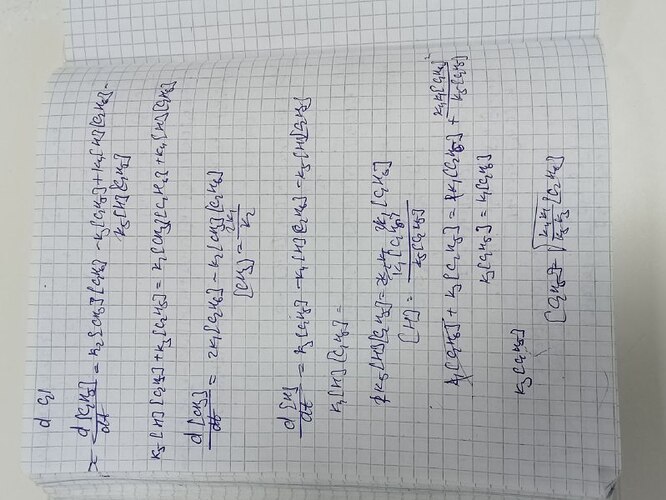 d C
d[C₂H₅]/dt = k₂[CH₃][C₂H₆] - k₃[C₂H₅] + k₄[H][C₂H₆] -
k₅[H][C₂H₅]
k₅[H][C₂H₅] + k₃[C₂H₅] = k₂[CH₃][C₂H₆] + k₄[H][C₂H₆]
d[CH₃]/dt = 2k₁[C₂H₆] - k₂[CH₃][C₂H₆]
[CH₃] = 2k₁/k₂
d[H]/dt = k₃[C₂H₅] - k₄[H][C₂H₆] - k₅[H][C₂H₅]
k₄[H][C₂H₆] =
k₅[H][C₂H₅] = 2k₁[C₂H₆]
[H] = k₁[C₂H₆]/k₅[C₂H₅]
k₁[C₂H₆] + k₃[C₂H₅] = 2k₁[C₂H₆] + k₄k₁[C₂H₆]²/k₅[C₂H₅]
k₃[C₂H₅] = k₁[C₂H₆]
k₃[C₂H₅]
[C₂H₅] = √(k₄k₁/k₅k₃) [C₂H₆]